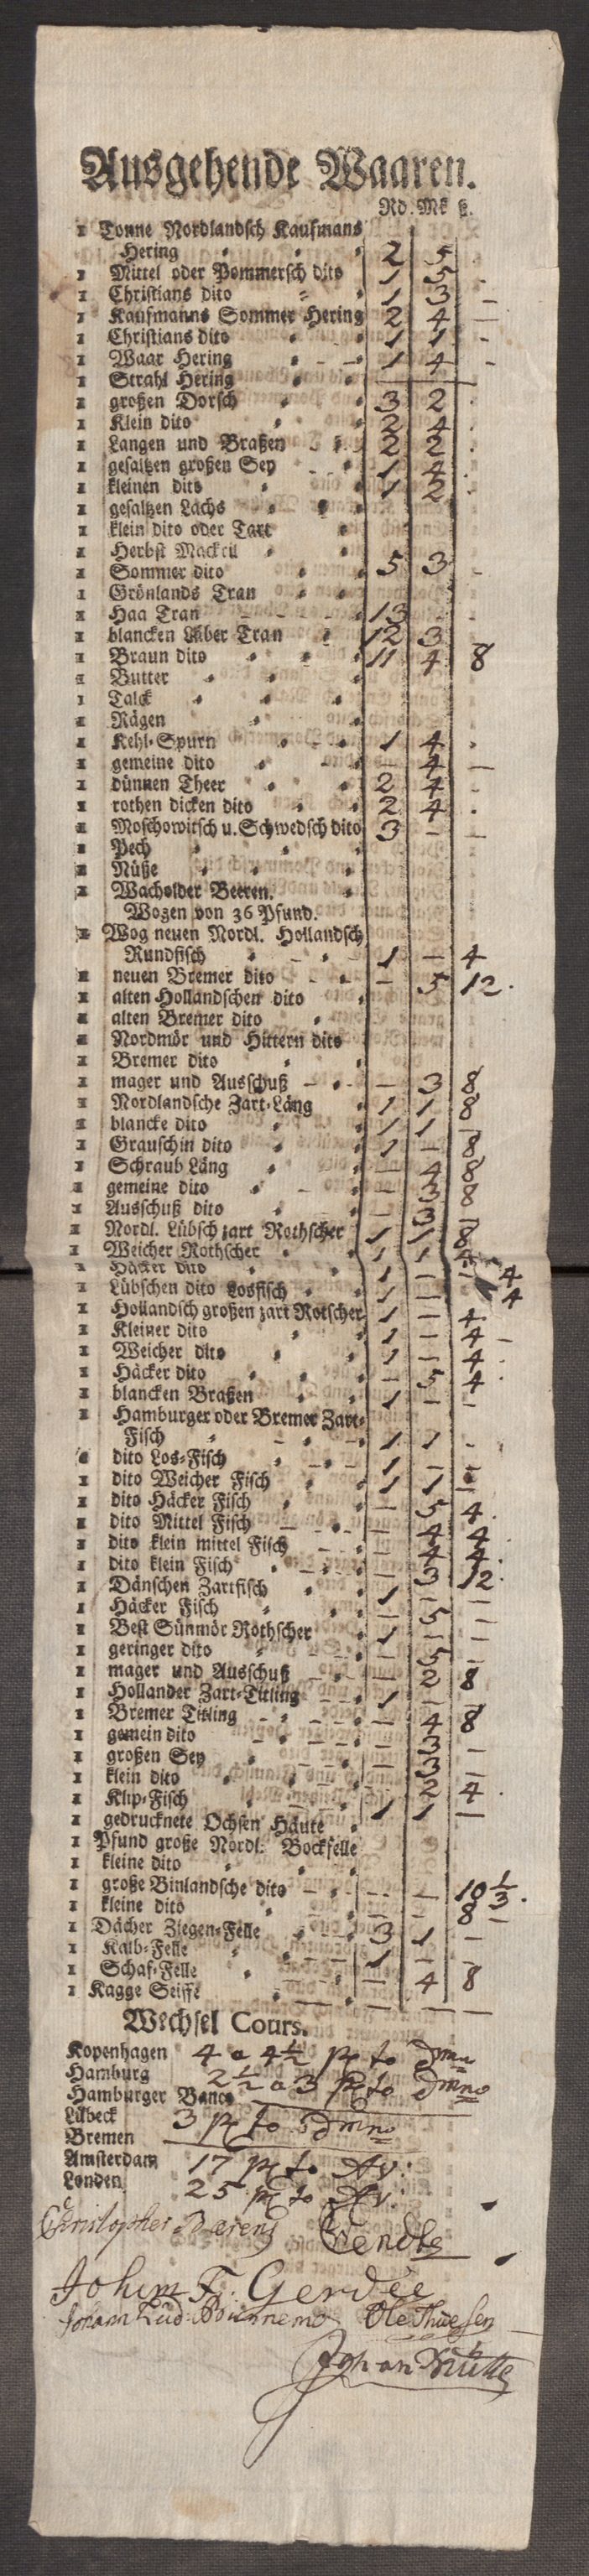 Ausgehende Waaren.
Rd. Mk ß.
1 Tonne Nordlandsch Kaufmans
Hering 2 5
1 Mittel oder Pommersch dito 1 5
1 Christians dito 1 3 –
1 Kaufmanns Sommer Hering 2 4 –
1 Christians dito 1 1
1 Waar Hering 1 4 –
1 Strahl Hering
1 großen Dorsch 3 2
1 Klein dito 2 4
1 Langen und Braßen 2 2
1 gesaltzen großen Sey 1 4
1 kleinen dito 1 2
1 gesaltzen Lachs
1 klein dito oder Tart
1 Herbst Mackril
1 Sommer dito 5 3 –
1 Grönlands Tran
1 Haa Tran 13
1 blancken Läber Tran 12 3
1 Braun dito 11 4 8
1 Butter
1 Talck
1 Rägen
1 Kehl-Spurn 1 4
1 gemeine dito – 4 –
1 dünnen Theer 2 4
1 rothen dicken dito 2 4
1 Moschowitsch u. Schwedsch dito 3 – –
1 Pech
1 Nüße
1 Wacholder Beeren.
Wogen von 36 Pfund.
1 Wog neuen Nordl. Hollandsch
Rundfisch 1 – 4
1 neuen Bremer dito – 5 12
1 alten Hollandschen dito
1 alten Bremer dito
1 Nordmör und Hittern dito
1 Bremer dito
1 mager und Ausschuß – 3 8
1 Nordlandsche Zart-Läng 1 1 8
1 blancke dito 1 1 –
1 Grauschin dito 1 – 8
1 Schraub Läng – 4 8
1 gemeine dito – 3 8
1 Ausschuß dito – 3 –
1 Nordl. Lübsch zart Rothscher 1 1 8
1 Weicher Rothscher 1 1
1 Häcker dito
1 Lübschen dito Losfisch
1 Hollandsch großen zart Rotscher 1 – 4
1 Kleiner dito 1 – 4
1 Weicher dito 1 – 4
1 Häcker dito – 5 4
1 blancken Braßen 1 – –
1 Hamburger oder Bremer Zart-
Fisch 1 1
1 dito Los-Fisch
1 dito Weicher Fisch
1 dito Häcker Fisch – 5 4
1 dito Mittel Fisch – 4 4
1 dito klein mittel Fisch – 4 4
1 dito klein Fisch – 3 12
1 Dänschen Zartfisch 1 – –
1 Häcker Fisch – 5 –
1 Best Sünmör Rothscher 1 – –
1 geringer dito – 5
1 mager und Ausschuß – 2 8
1 Hollander Zart-Titling 1 –
1 Bremer Titling – 4 8
1 gemein dito – 3
1 großen Sey – 3 –
1 klein dito – 2 4
1 Klip-Fisch 1 1 –
1 gedrucknete Ochsen Häute
1 Pfund große Nordl. Bockfelle
1 kleine dito
1 große Binlandsche dito – – 10 1/3
1 kleine dito – – 8
1 Dächer Ziegen-Felle 3 1 –
1 Kalb-Felle 1 – –
1 Schaf-Felle – 4 8
1 Kagge Seiffe – – –
Wechsel Cours.
Kopenhagen 4 a 4 1/2 pC to
Hamburg 2 1/2 a 3 pC to
Hamburger Banco
Lübeck 3 pC to
Bremen
Amsterdam 17 pC to
Londen 25 pC to
Christopher
Johim F. Gerdee
Johan Lud: Ole Thuesen
Johan